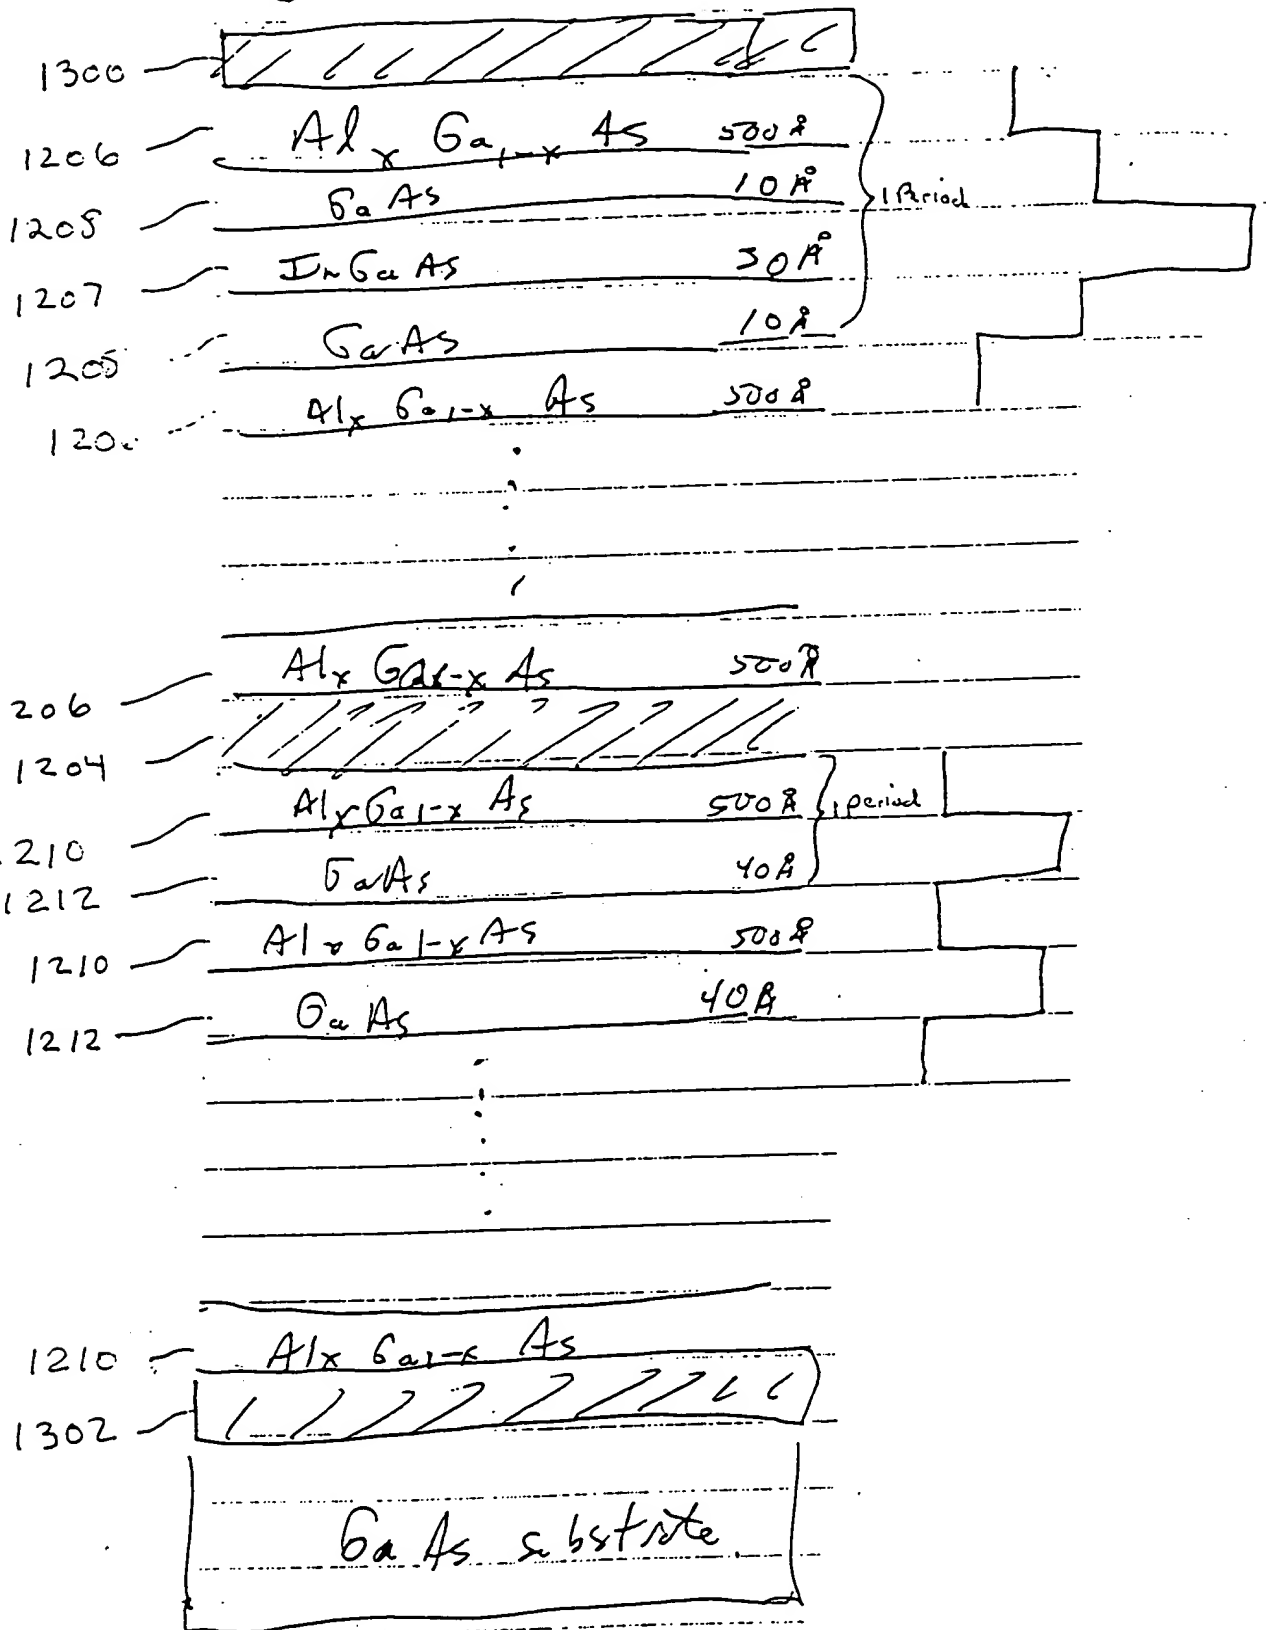 1300
1206 Al x Ga 1-x As 500Å
1208 GaAs 10Å
1 Period
1207 InGaAs 30Å
1208 GaAs 10Å
Al x Ga 1-x As 500Å
206 Al x Ga 1-x As 500Å
1204
1210 Al x Ga 1-x As 500Å
1 period
1212 GaAs 40Å
1210 Al x Ga 1-x As 500Å
1212 GaAs 40Å
1210 Al x Ga 1-x As
1302
GaAs substrate